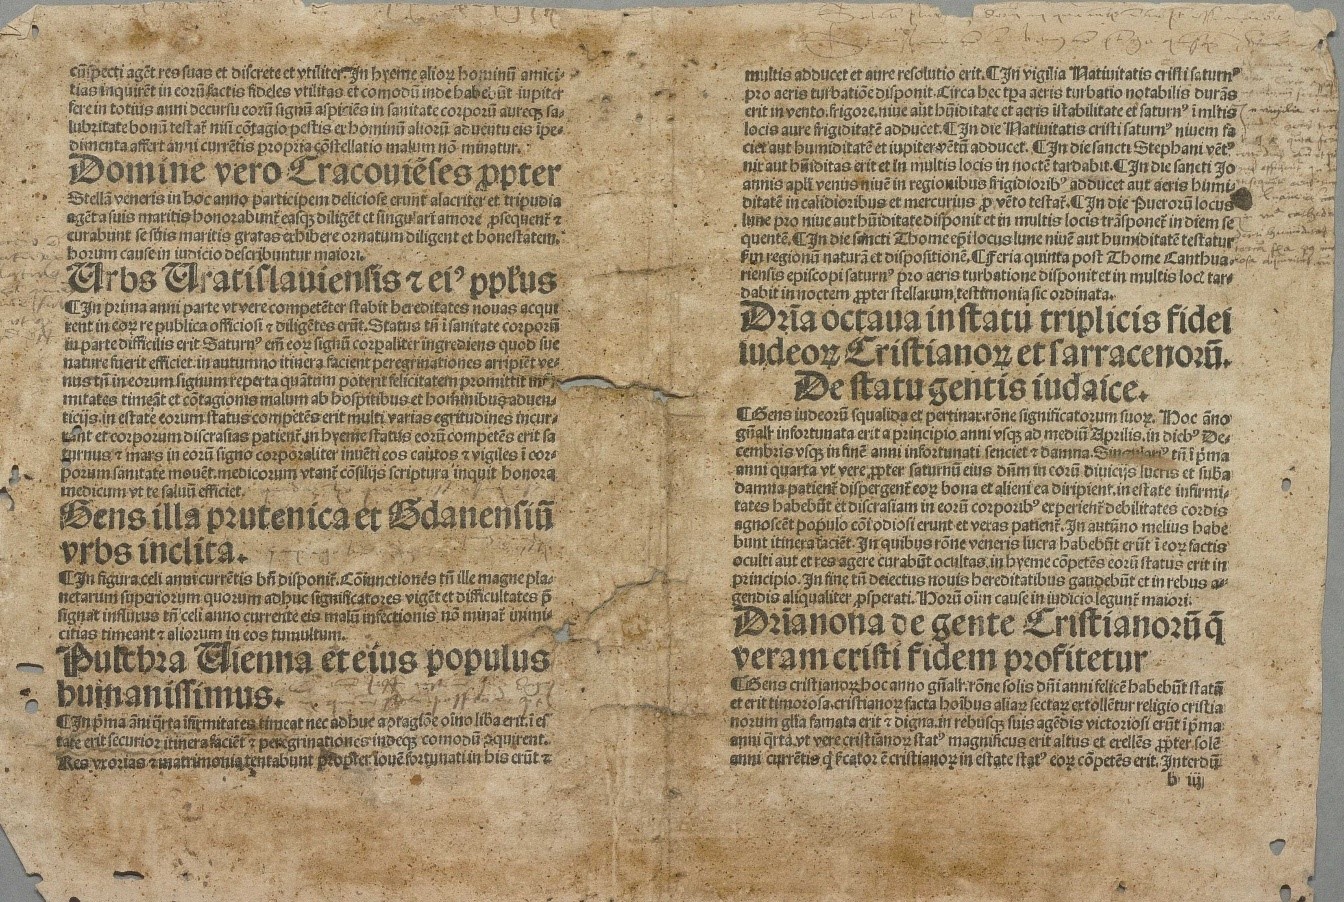 cūspecti agēt res suas et discrete et vtiliter. In hyeme alioꝝ hominū amici-
tias inquirēt in eorū factis fideles vtilitas et comodū inde habebūt iupiter
fere in totius anni decursu eorū signū aspiciēs in sanitate corporū aureqꝫ sa-
lubritate bonū testat᷑ nisi cōtagio pestis ex hominū aliorū aduentu eis īpe-
dimenta affert anni currētis propria cōstellatio malum nō minatur.
Domine vero Cracouiēses ꝓpter
Stellā veneris in hoc anno participem deliciose erunt alacriter et tripudia
agēt a suis maritis honorabunt᷑ easqꝫ diligēt et singulari amore ꝓsequent᷑ ⁊
curabunt se suis maritis gratas exhibere ornatum diligent et honestatem.
horum cause in iudicio describuntur maiori.
Urbs Uratislauiensis ⁊ eiꝰ ppl'us
¶In prima anni parte vt vere competēter stabit hereditates nouas acqui
rent in eoꝝ re publica officiosi ⁊ diligētes erūt. Status tn̄ ī sanitate corporū
in parte difficilis erit Saturnꝰ em̄ eoꝝ signū corpaliter īngrediens quod sue
nature fuerit efficiet. in autumno itinera facient peregrinationes arripiēt ve-
nus tn̄ in eorum signum reperta quātum poterit felicitatem promittit inf
mitates timeāt et cōtagionis malum ab hospitibus et hominibus aduen-
ticijs. in estate eorum status competēs erit multi varias egritudines incur-
rant et corporum discrasias patient᷑. in hyeme status eorū competēs erit sa
turnus ⁊ mars in eorū signo corporaliter inuēti eos cautos ⁊ vigiles ī cor-
porum sanitate mouēt. medicorum vtant᷑ cōsilijs scriptura inquit honora
medicum vt te saluū efficiet.
Gens illa prutenica et Gdanensiū
vrbs inclita.
¶In figura celi anni currētis bn̄ disponit᷑. Cōiunctiones tn̄ ille magne pla-
netarum superiorum quorum adhuc significatores vigēt et difficultates p̄
signāt influxus tn̄ celi anno currente eis malū infectionis nō minat᷑ inimi-
citias timeant ⁊ aliorum in eos tumultum.
Pulchra Uienna et eius populus
humanissimus.
¶In p̄ma āni q̄rta īfirmitates timeat nec adhuc a cōtagiōe oīno liba erit. ī es
tate erit securior itinera faciēt ⁊ peregrinationes indeqꝫ comodū acquirent.
Res vxorias ⁊ matrimonia tentabunt propter iouē fortunati in his erūt ⁊
multis adducet et aure resolutio erit. ¶In vigilia Natiuitatis cristi saturnꝰ
pro aeris turbatiōe disponit. Circa hec tꝑa aeris turbatio notabilis durās
erit in vento. frigore. niue aut hūiditate et aeris īstabilitate et saturnꝰ ī mltis
locis aure frigiditatē adducet. ¶In die Natiuitatis cristi saturnꝰ niuem fa
ciet aut humiditatē et iupiter vētū adducet. ¶In die sancti Stephani vētꝰ
nix aut hūiditas erit et in multis locis in noctē tardabit. ¶In die sancti Jo
annis apli venus niuē in regionibus frigidioribꝰ adducet aut aeris humi
ditatē in calidioribus et mercurius ꝓ vēto testat᷑. ¶In die Puerorū locus
lune pro niue aut hūiditate disponit et in multis locis trāsponet᷑ in diem se
quentē. ¶In die sancti Thome ep̄i locus lune niuē aut humiditatē testatur
ẜm regionū naturā et dispositionē. ¶Feria quinta post Thome Canthua
riensis episcopi saturnꝰ pro aeris turbatione disponit et in multis locꝭ tar-
dabit in noctem ꝓpter stellarum testimonia sic ordinata.
Dr̄ia octaua in statu triplicis fidei
iudeoꝝ Cristianoꝝ et sarracenorū.
De statu gentis iudaice.
¶Gens iudeorū squalida et pertinax rōne significatorum suoꝝ. Hoc āno
gn̄alr̄ infortunata erit a principio anni vsqꝫ ad mediū Aprilis. in diebꝰ De-
cembris vsqꝫ in finē anni infortunati senciet ⁊ damna. Singularꝰ tn̄ ī p̄ma
anni quarta vt vere ꝓpter saturnū eius dn̄m in eorū diuicijs lucris et suba
damna patient᷑ dispergent᷑ eoꝝ bona et alieni ea diripient. in estate infirmi-
tates habebūt et discrasiam in eorū corporibꝰ experient᷑ debilitates cordis
agnoscēt populo cōi odiosi erunt et veras patient᷑. In autūno melius habe
bunt itinera faciēt. In quibus rōne veneris lucra habebūt erūt ī eoꝝ factis
oculti aut et res agere curabūt ocultas. in hyeme cōpetēs eorū status erit in
principio. In fine tn̄ deiectus nouis hereditatibus gaudebūt et in rebus a-
gendis aliqualiter ꝓsperati. Horū oīm cause in iudicio legunt᷑ maiori.
Dr̄ia nona de gente Cristianorū q̄
veram cristi fidem profitetur
¶Gens cristianoꝝ hoc anno gn̄alr̄ rōne solis dn̄i anni felicē habebūt statū
et erit timorosa. cristianoꝝ facta hoībus aliaꝝ sectaꝝ extollēt᷑ religio cristia
norum gl'ia famata erit ⁊ digna. in rebusqꝫ suis agēdis victoriosi erūt ī p̄ma
anni q̄rta. vt vere cristianoꝝ statꝰ magnificus erit altus et exellēs ꝓpter solē
anni currētis q̄ ē cristianoꝝ in estate statꝰ eoꝝ cōpetēs erit. Interdū
b iij